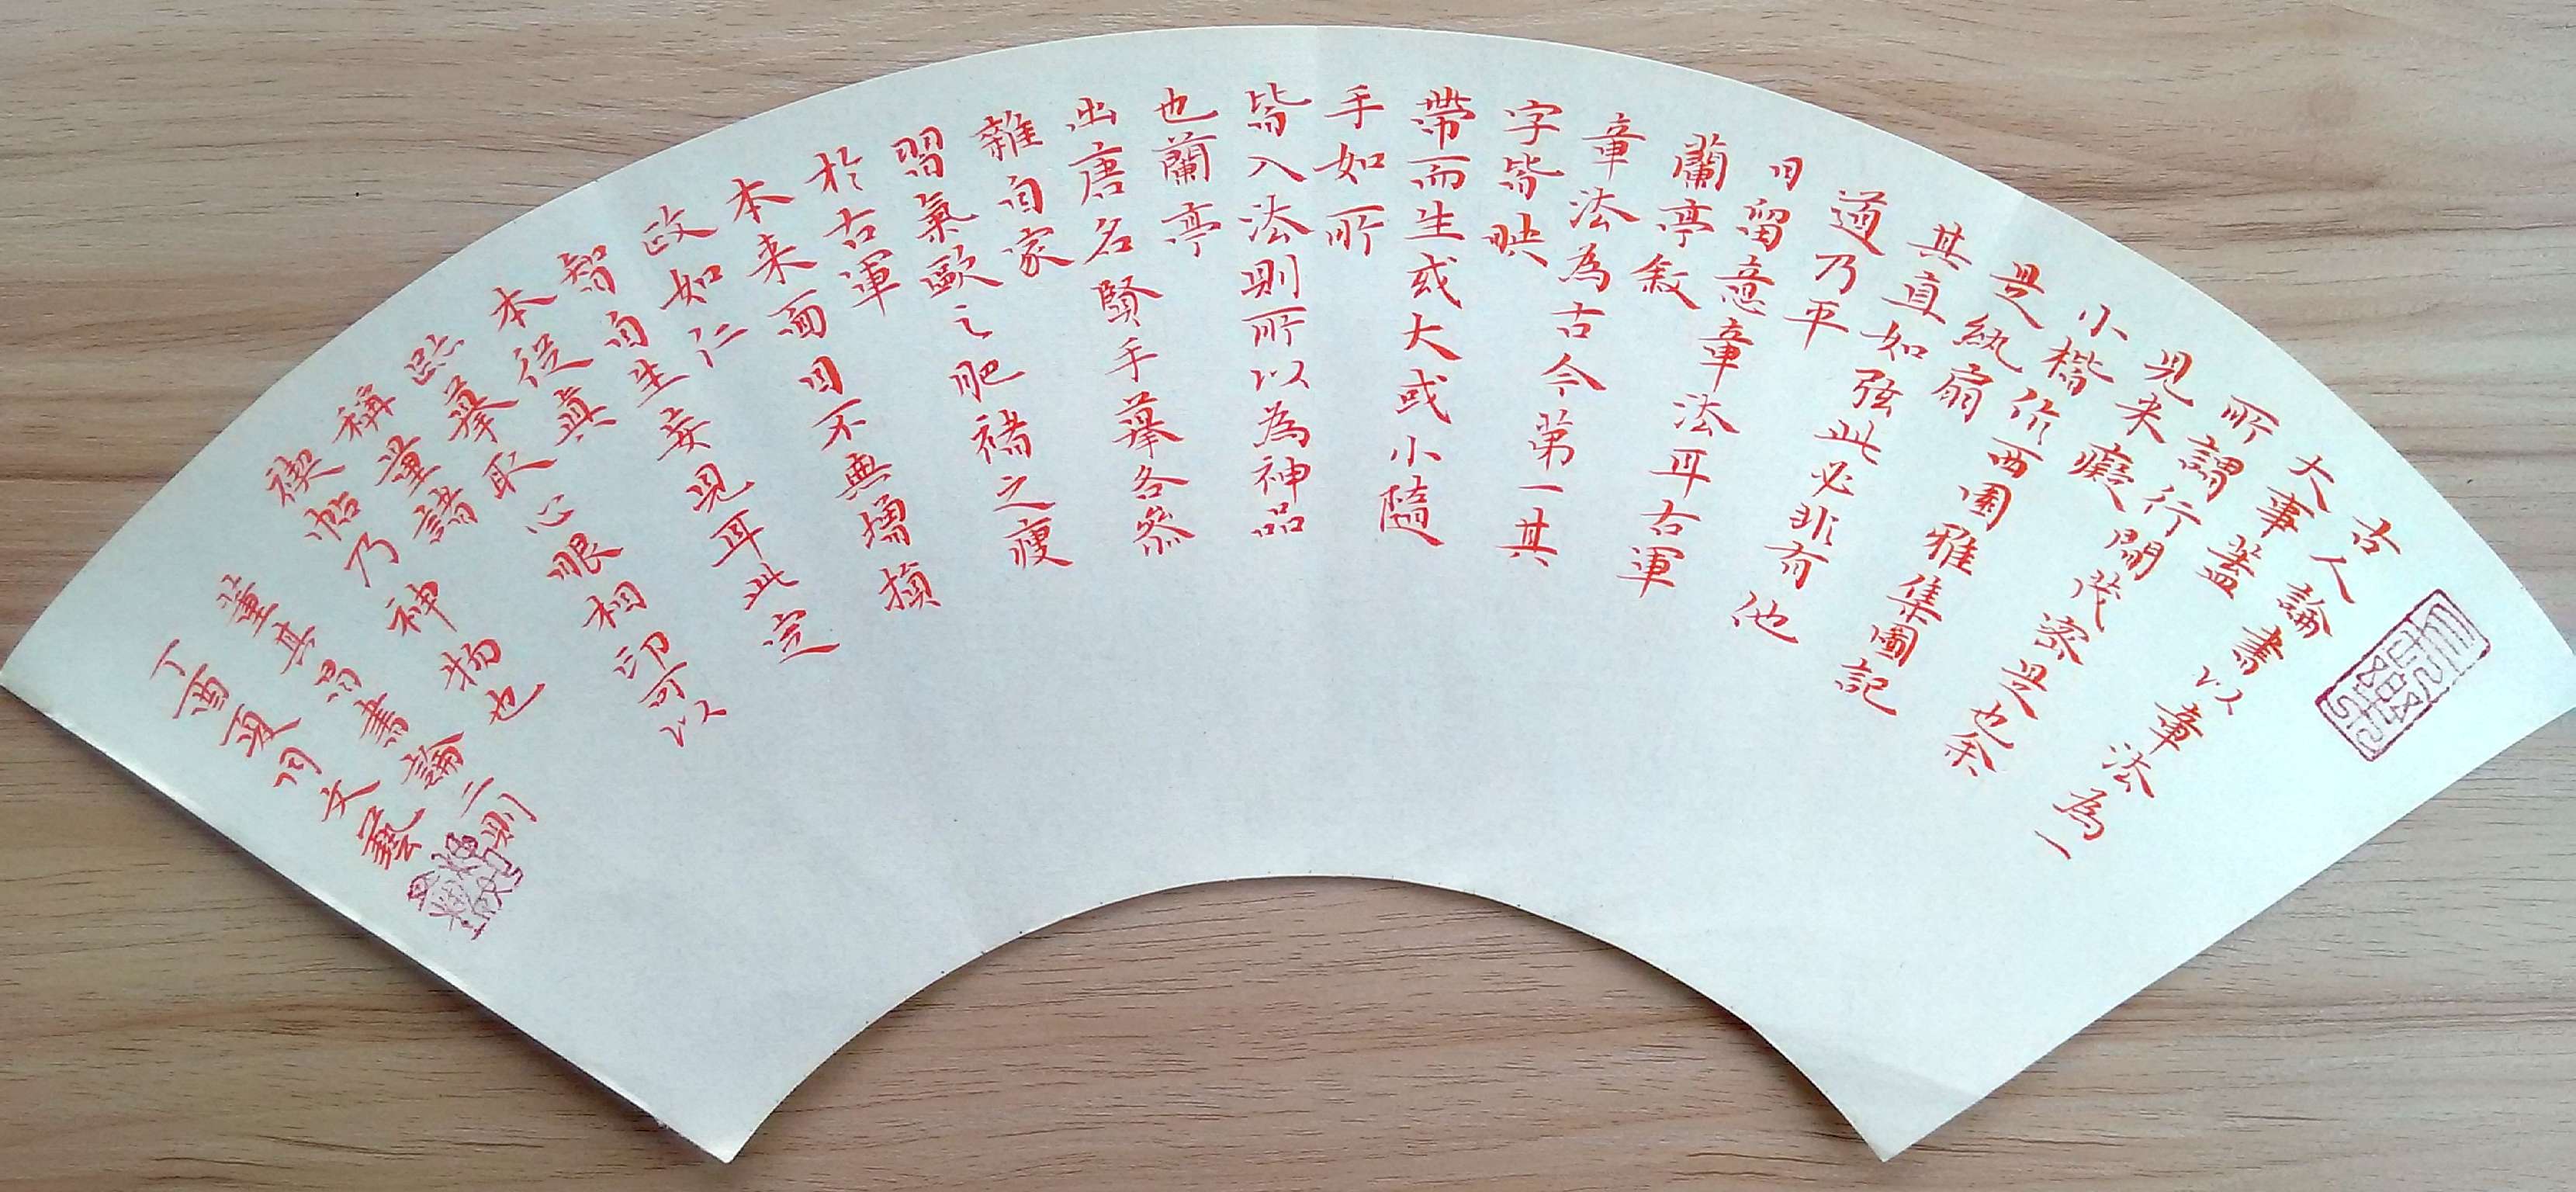 古人論書以章法為一
大事蓋
所謂行間茂密是也余
見米癡
小楷作西園雅集圖記
是紈扇
其直如弦此必非有他
道乃平
日留意章法耳右軍
蘭亭敘
章法為古今第一其
字皆映
帶而生或大或小隨
手如所
皆入法則所以為神品
也蘭亭
出唐名賢手摹各參
雜自家
習氣歐之肥褚之瘦
於右軍
本來面目不無增損
政如仁
智自生妄見耳此定
本從真
點摹取心眼相印可以
稱量諸
禊帖乃神物也
董其昌書論二則
丁酉夏月文藝